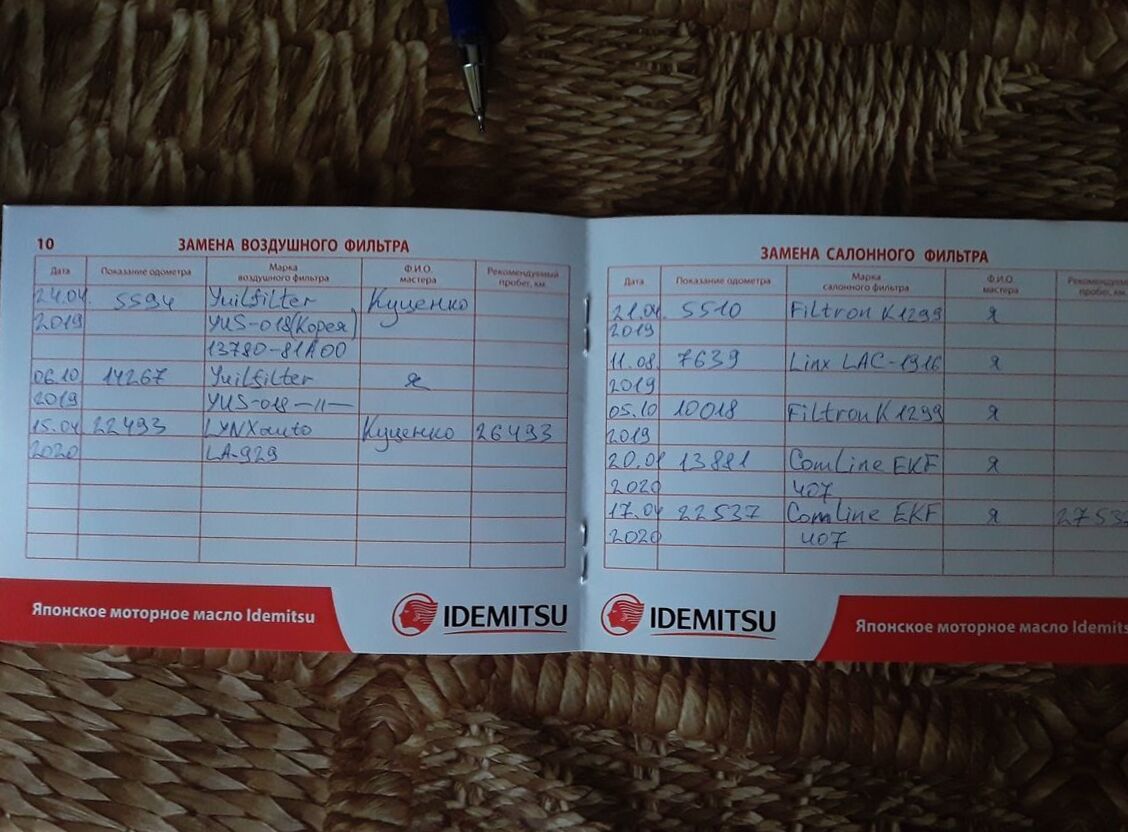 10
ЗАМЕНА ВОЗДУШНОГО ФИЛЬТРА
Дата Показание одометра Марка воздушного фильтра Ф.И.О. мастера Рекомендуемый пробег, км.
24.04. 5594 Yuilfilter Куценко
2019 YUS-018(Корея)
13780-81A00
06.10 14267 Yuilfilter я
2019 YUS-018 —11—
15.04 22493 LYNXauto Куценко 26493
2020 LA-929
Японское моторное масло Idemitsu
IDEMITSU
ЗАМЕНА САЛОННОГО ФИЛЬТРА
Дата Показание одометра Марка салонного фильтра Ф.И.О. мастера Рекоменд
пробег, км
21.04 5510 Filtron K1299 я
2019
11.08. 7639 Linx LAC-1916 я
2019
05.10 10018 Filtron K1299 я
2019
20.01 13881 ComLine EKF я
2020 407
17.04 22537 ComLine EKF я 27537
2020 407
IDEMITSU
Японское моторное масло Idemits